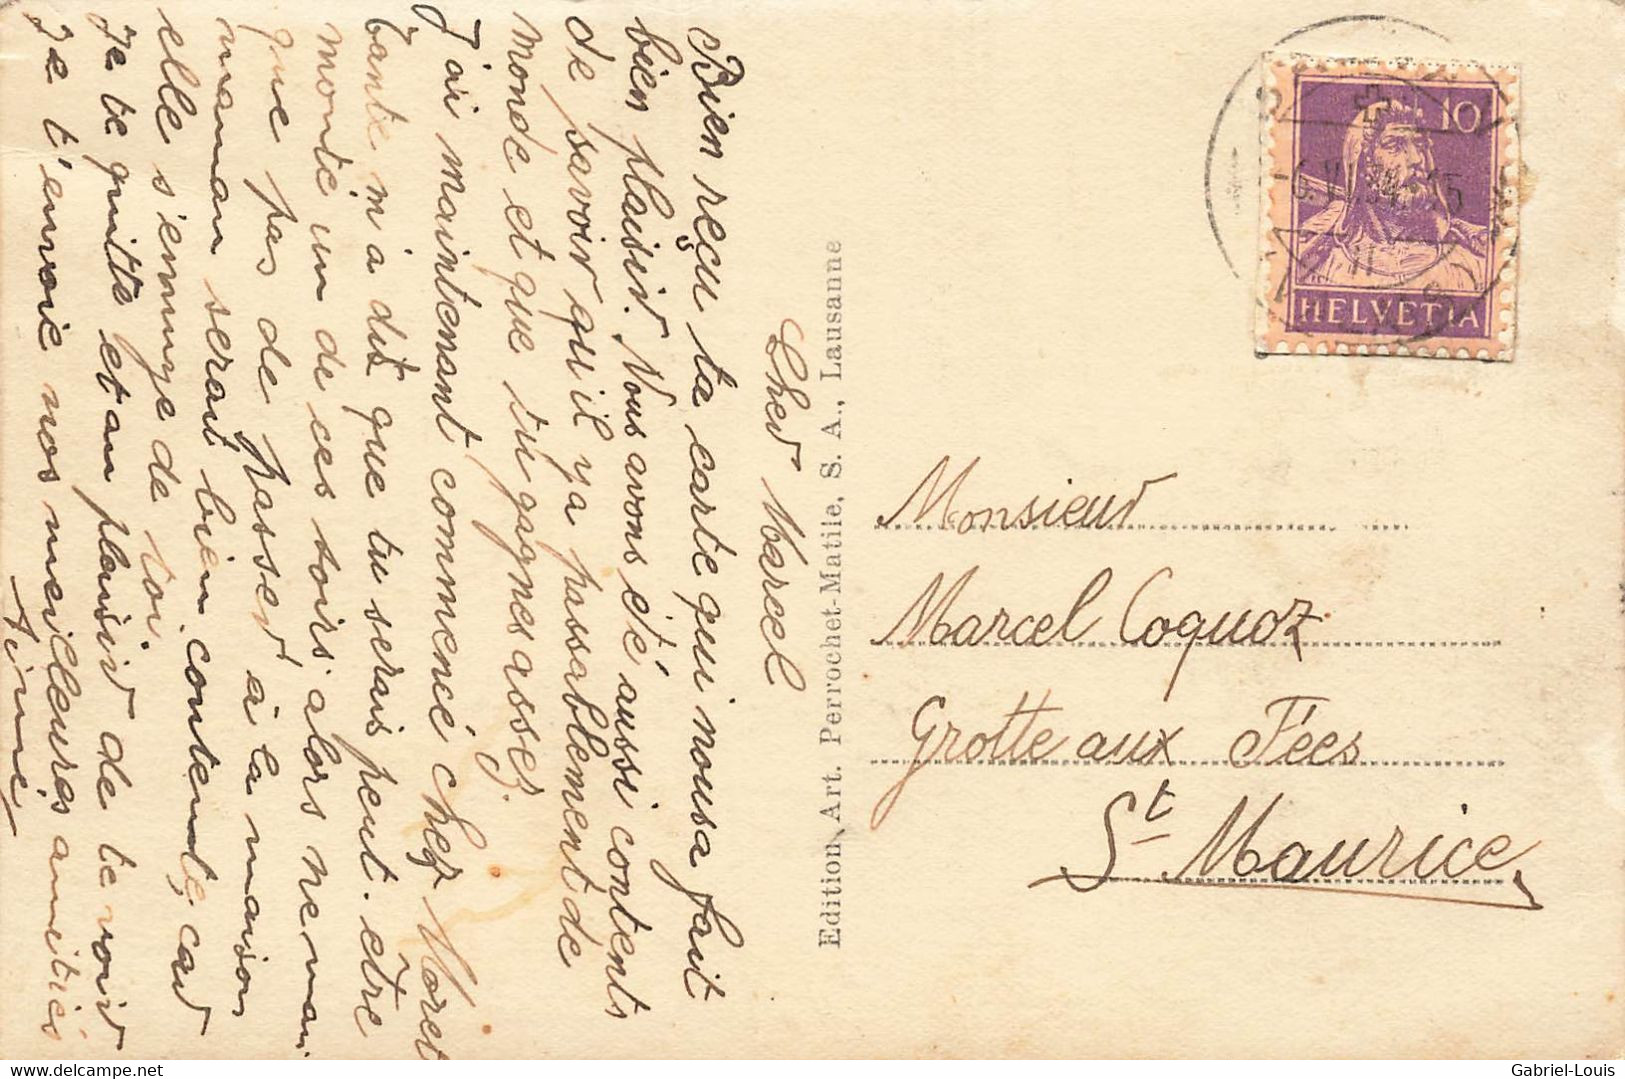 Cher Marcel
Bien reçu ta carte qui nous a fait
bien plaisir. Nous avons été aussi contents
de savoir qu'il y a passablement de
monde et que tu gagnes assez.
J'ai maintenant commencé chez Moret
tante m'a dit que tu serais peut-être
monté un de ces soirs alors ne man
que pas de passer à la maison
maman serait bien contente, car
elle s'ennuye de toi.
Je te quitte et au plaisir de te voir
Je t'envoie nos meilleures amitiés
Aimé
Edition, Art. Perrochet-Matile, S. A., Lausanne
10
HELVETIA
Monsieur
Marcel Coquoz
Grotte aux Fées
St Maurice
delcampe.net
Gabriel-Louis